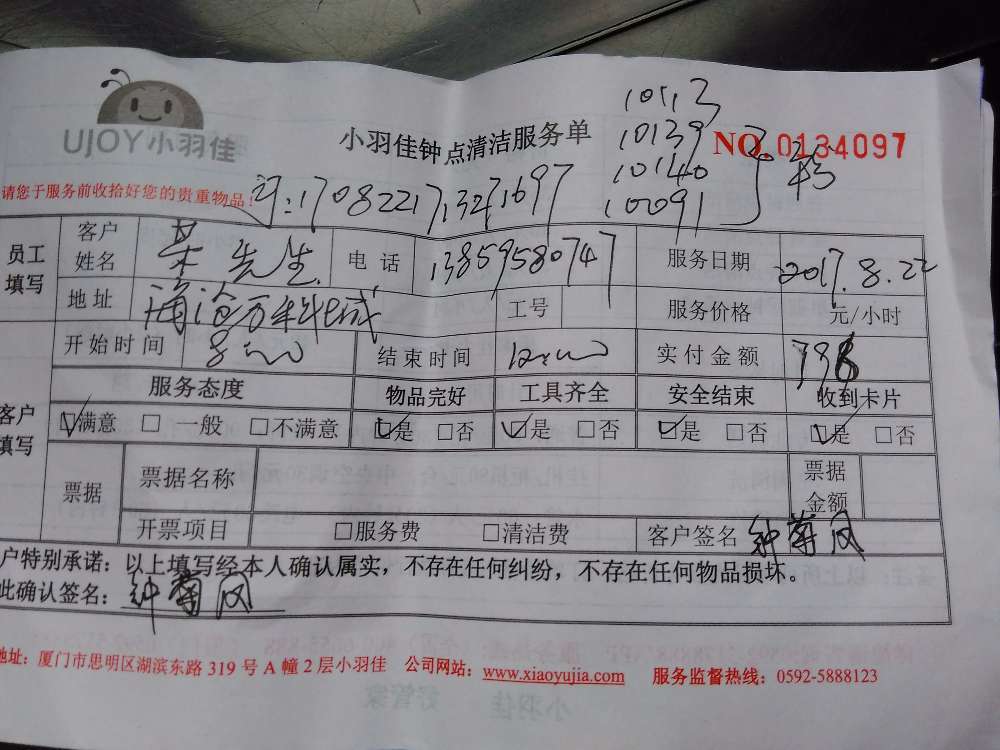 UJOY小羽佳
小羽佳钟点清洁服务单
10113
10139
10140
10091
NO.0134097
请您于服务前收拾好您的贵重物品！
员工填写 客户姓名 先生 电话 13859580747 服务日期 2017.8.22
地址 海沧万科城 工号 服务价格 元/小时
开始时间 8:00 结束时间 12:00 实付金额 798
服务态度 物品完好 工具齐全 安全结束 收到卡片
客户填写 □满意 □一般 □不满意 □是 □否 □是 □否 □是 □否 □是 □否
票据 票据名称 票据金额
开票项目 □服务费 □清洁费 客户签名 钟菊风
户特别承诺：以上填写经本人确认属实，不存在任何纠纷，不存在任何物品损坏。
此确认签名：钟菊风
地址：厦门市思明区湖滨东路 319 号 A 幢 2 层小羽佳 公司网站：www.xiaoyujia.com 服务监督热线：0592-5888123